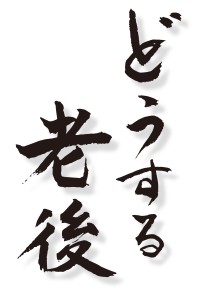 どうする
老後